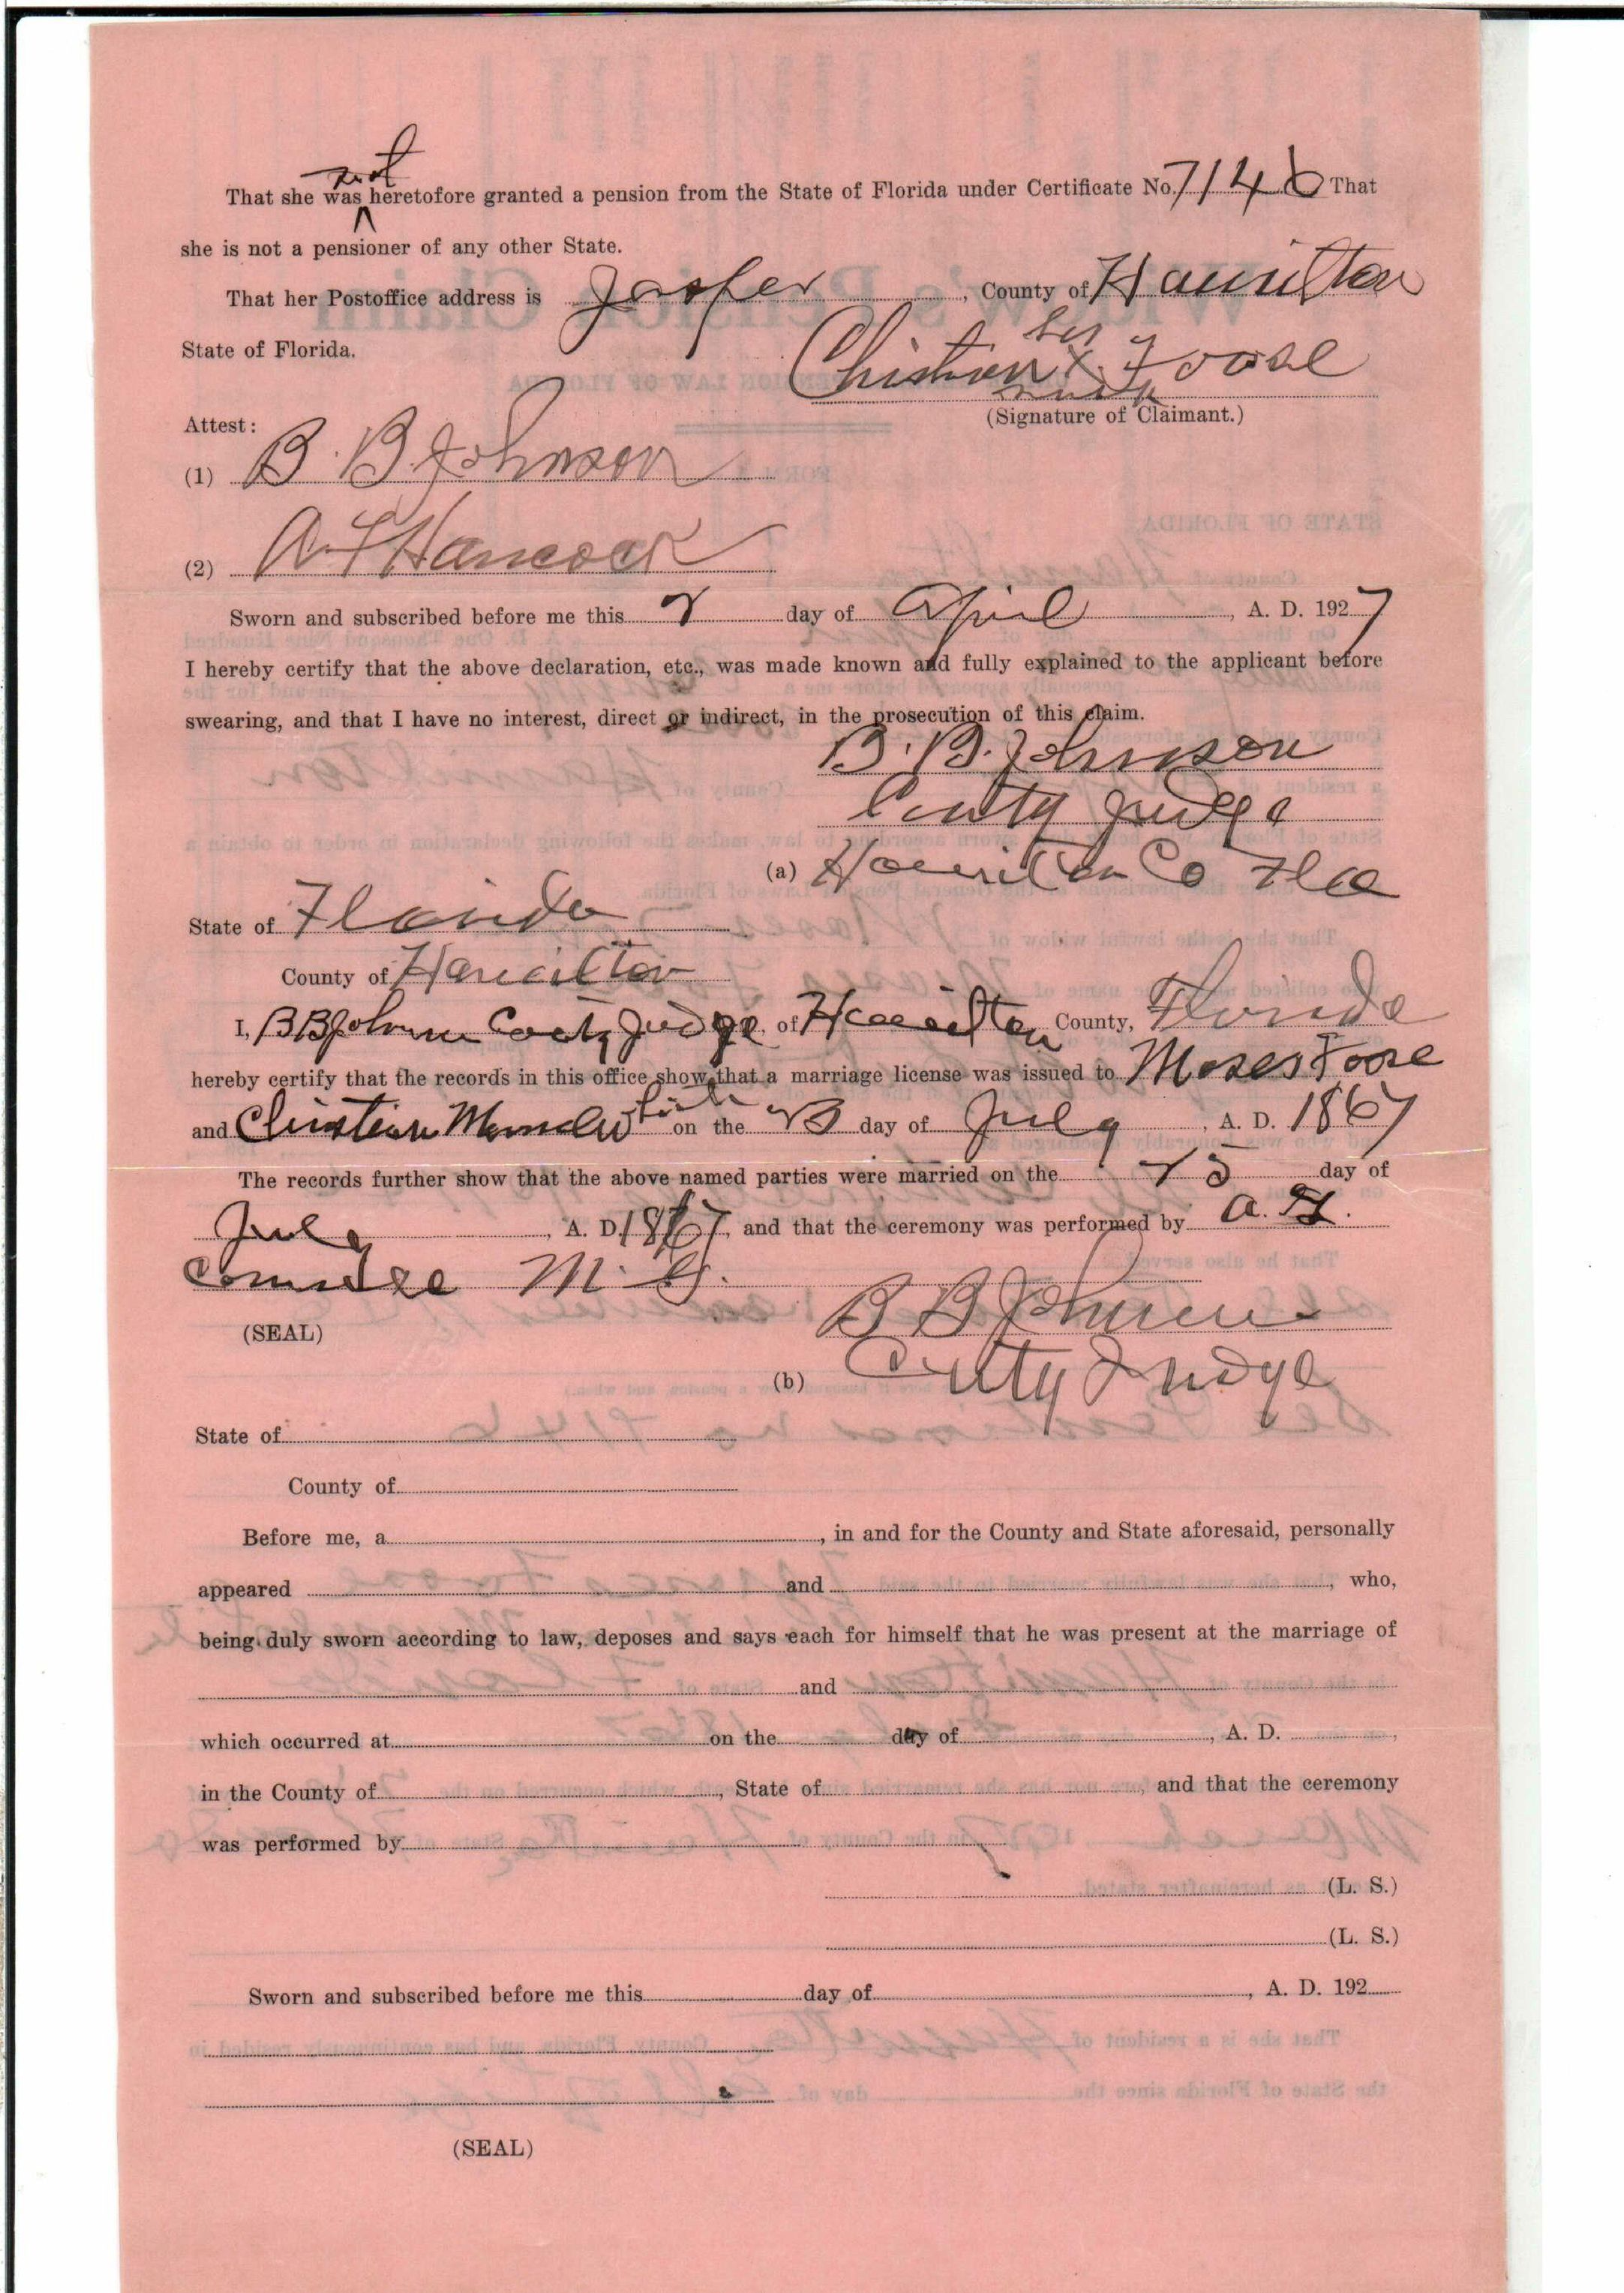 not
That she was heretofore granted a pension from the State of Florida under Certificate No. 7146 That
she is not a pensioner of any other State.
That her Postoffice address is Jasper, County of Hamilton
State of Florida.
her
Christian X Foose
mark
(Signature of Claimant.)
Attest:
(1) B. B. Johnson
(2) A F Hancock
Sworn and subscribed before me this 2 day of April, A. D. 1927
I hereby certify that the above declaration, etc., was made known and fully explained to the applicant before
swearing, and that I have no interest, direct or indirect, in the prosecution of this claim.
B. B. Johnson
County Judge
(a) Hamilton Co Fla
State of Florida
County of Hamilton
I, B B Johnson County Judge of Hamilton County, Florida
hereby certify that the records in this office show that a marriage license was issued to Moses Foose
and Christian on the 23 day of July, A. D. 1867
The records further show that the above named parties were married on the 25 day of
July, A. D. 1867, and that the ceremony was performed by A.
M. G.
(SEAL)
B B Johnson
(b) County Judge
State of
County of
Before me, a, in and for the County and State aforesaid, personally
appeared and, who,
being duly sworn according to law, deposes and says each for himself that he was present at the marriage of
and
which occurred at on the day of, A. D.,
in the County of, State of, and that the ceremony
was performed by
(L. S.)
(L. S.)
Sworn and subscribed before me this day of, A. D. 192
(SEAL)